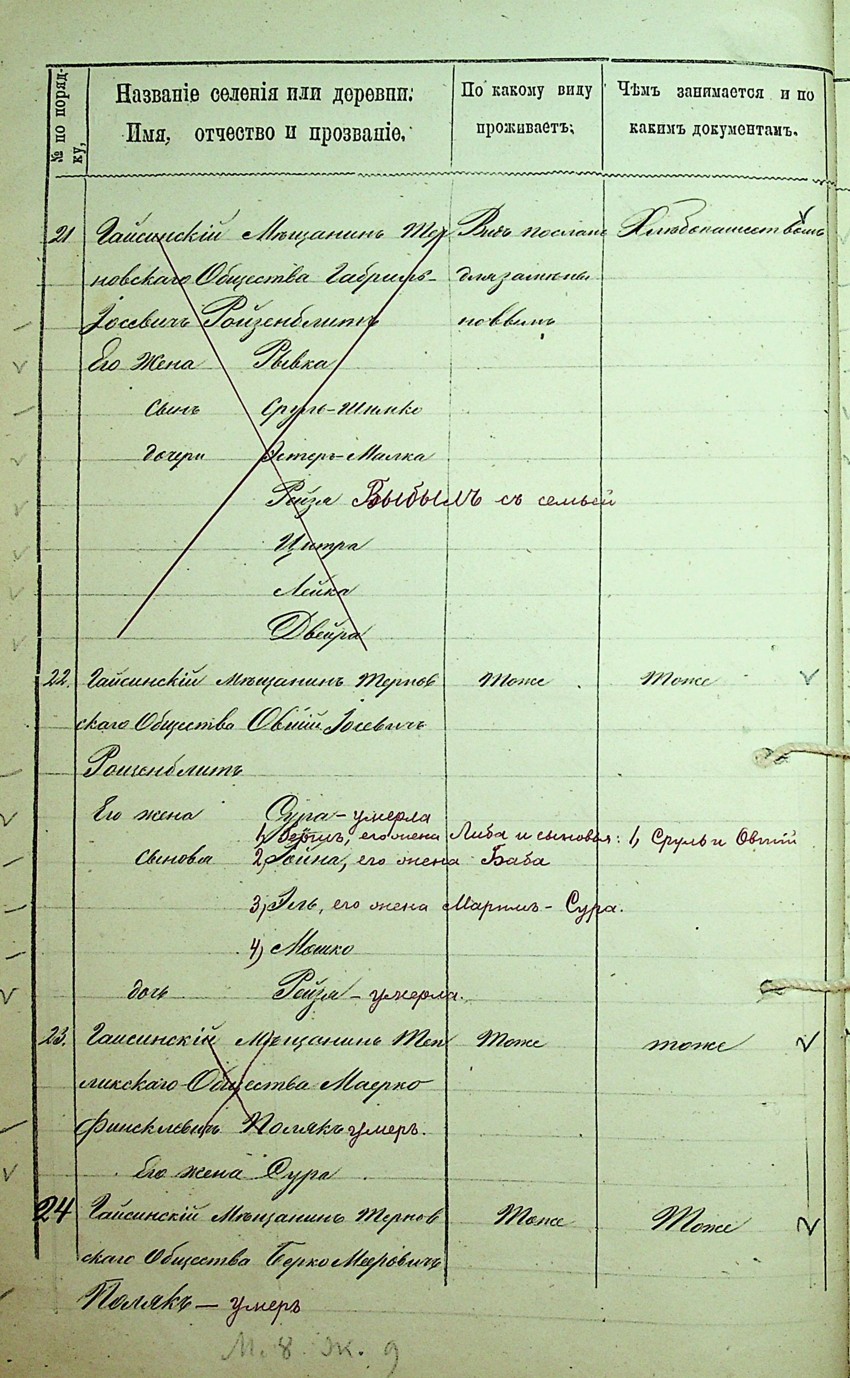 № по поряд-
ку,
Названіе селенія или деревни.
Имя, отчество и прозваніе.
По какому виду
проживаетъ.
Чѣмъ занимается и по
какимъ документамъ.
21 Гайсинскій Мѣщанинъ Тер Видъ посланъ Хлѣбопашествомъ
новскаго Общества Габриль- для замѣны
Іосевичъ Ройзенблитъ новымъ
Его Жена Рывка
сынъ Сруль-Шимко
дочери Эстеръ-Малка
Рейзя Выбылъ съ семьей
Цитра
Лейка
Двейра
22. Гайсинскій Мѣщанинъ Тернов Тоже Тоже
скаго Общества Овшій Іосевичъ
Ройзенблитъ
Его жена Сура - умерла
1, его жена Либа и сыновья: 1, Сруль и Овшій
Сыновья 2, Іойна, его жена Баба
3, Эль, его жена Маримъ - Сура.
4) Мошко
дочь Рейзя - умерла.
23. Гайсинскій Мѣщанинъ Теп Тоже тоже
ликскаго Общества Маерко
Полякъ умеръ.
Его жена Сура
24 Гайсинскій Мѣщанинъ Тернов Тоже Тоже
скаго Общества Берко Меровичъ
Полякъ — умеръ
М. 8. Ж. 9